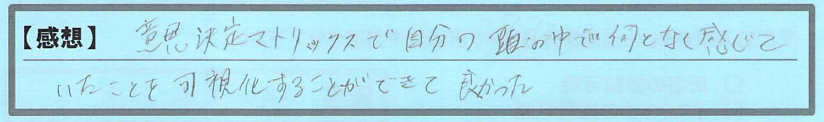 【感想】 意思決定マトリックスで自分の頭の中で何となく感じて
いたことを可視化することができて良かった